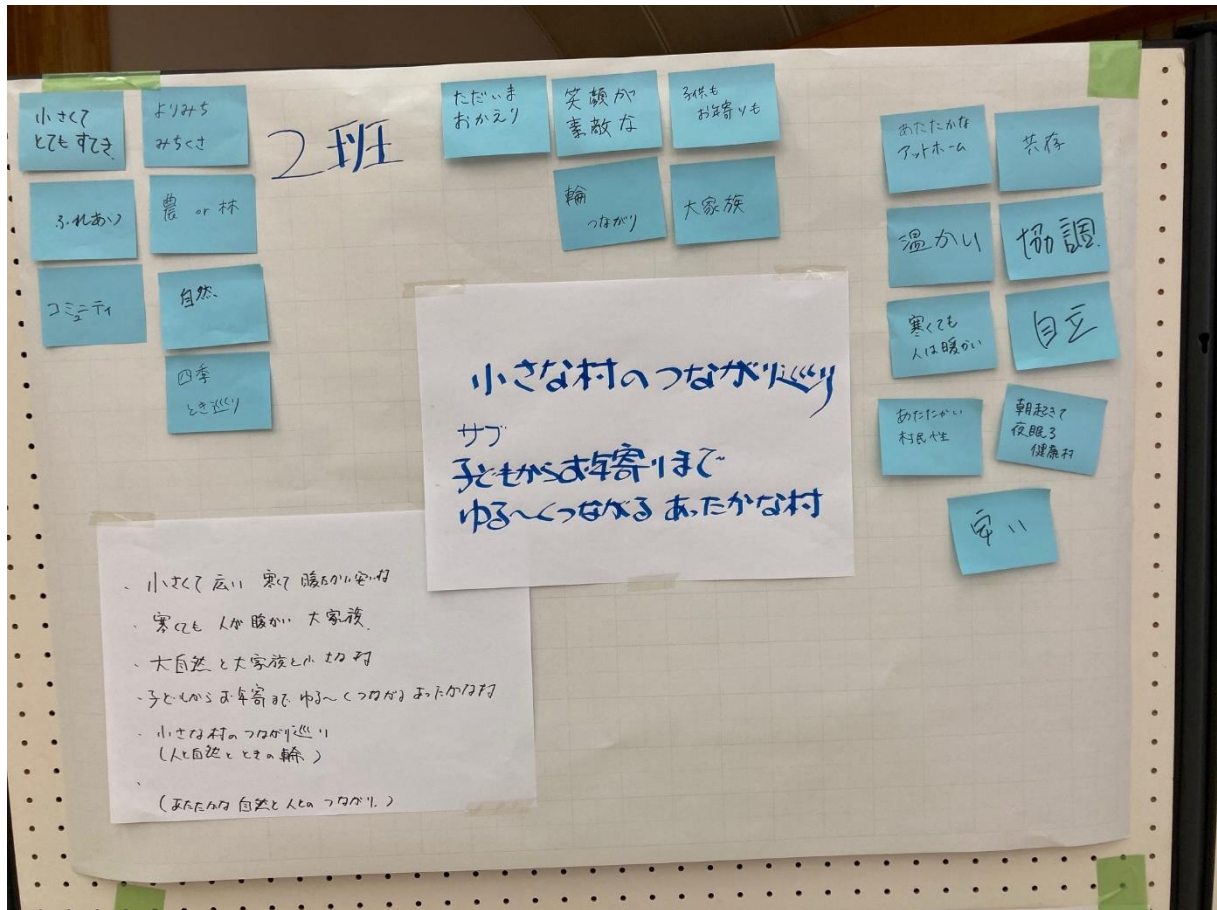 小さくて
とても すてき
よりみち
みちくさ
ふれあい
農 or 林
コミュニティ
自然
四季
とき巡り
2班
ただいま
おかえり
笑顔が
素敵な
子供も
お年寄りも
輪
つながり
大家族
あたたかな
アットホーム
共存
温かい
協調
寒くても
人は暖かい
自立
あたたかい
村民性
朝起きて
夜眠る
健康村
安い
小さな村のつながり巡り
サブ
子どもからお年寄りまで
ゆる〜くつながる あったかな村
・ 小さくて 広い 寒くて 暖たかい 安い村
・ 寒くても 人が暖かい 大家族
・ 大自然と大家族と小さな村
・子どもからお年寄まで ゆる〜くつながる あったかな村
・ 小さな村のつながり巡り
(人と自然と ときの輪)
・
(あたたかな 自然と人との つながり)